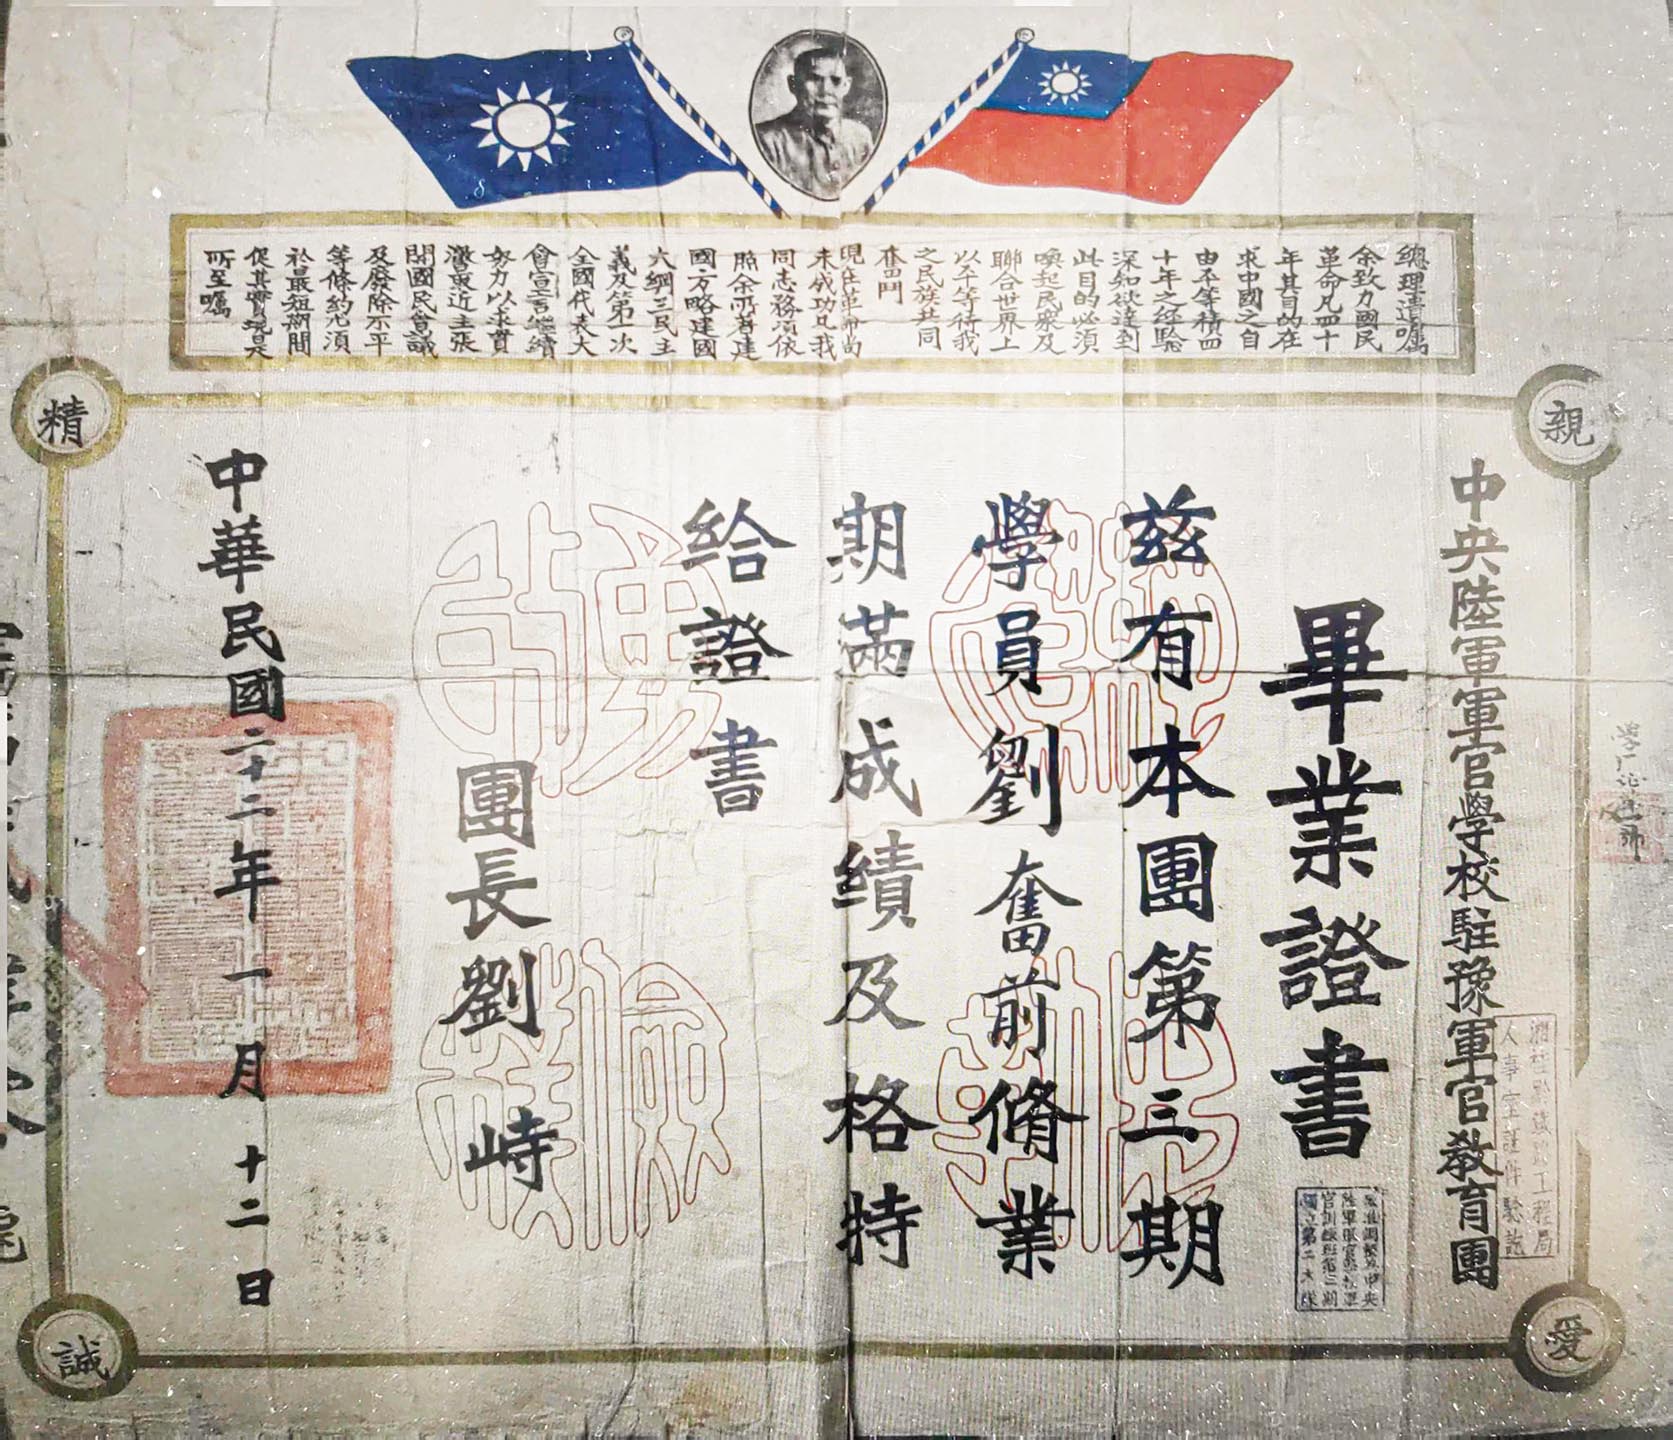 總理遺囑
余致力國民
革命凡四十
年其目的在
求中國之自
由不等積四
十年之經驗
深知欲達到
此目的必須
喚起民衆及
聯合世界上
以平等待我
之民族共同
奮鬥
現在革命尚
未成功凡我
同志務須依
照余所著建
國方略建國
大綱三民主
義及第一次
全國代表大
會宣言繼續
努力以求貫
澈最近主張
開國民會議
及廢除不平
等條約尤須
於最短期間
促其實現是
所至囑
親
愛
精
誠
中央陸軍軍官學校駐豫軍官教育團
畢業證書
茲有本團第三期
學員劉奮前脩業
期滿成績及格特
給證書
團長劉峙
中華民國二十二年一月十二日
工程局
人事室證件驗訖
陸軍軍官學校軍
官訓練班第三期
獨立第二大隊